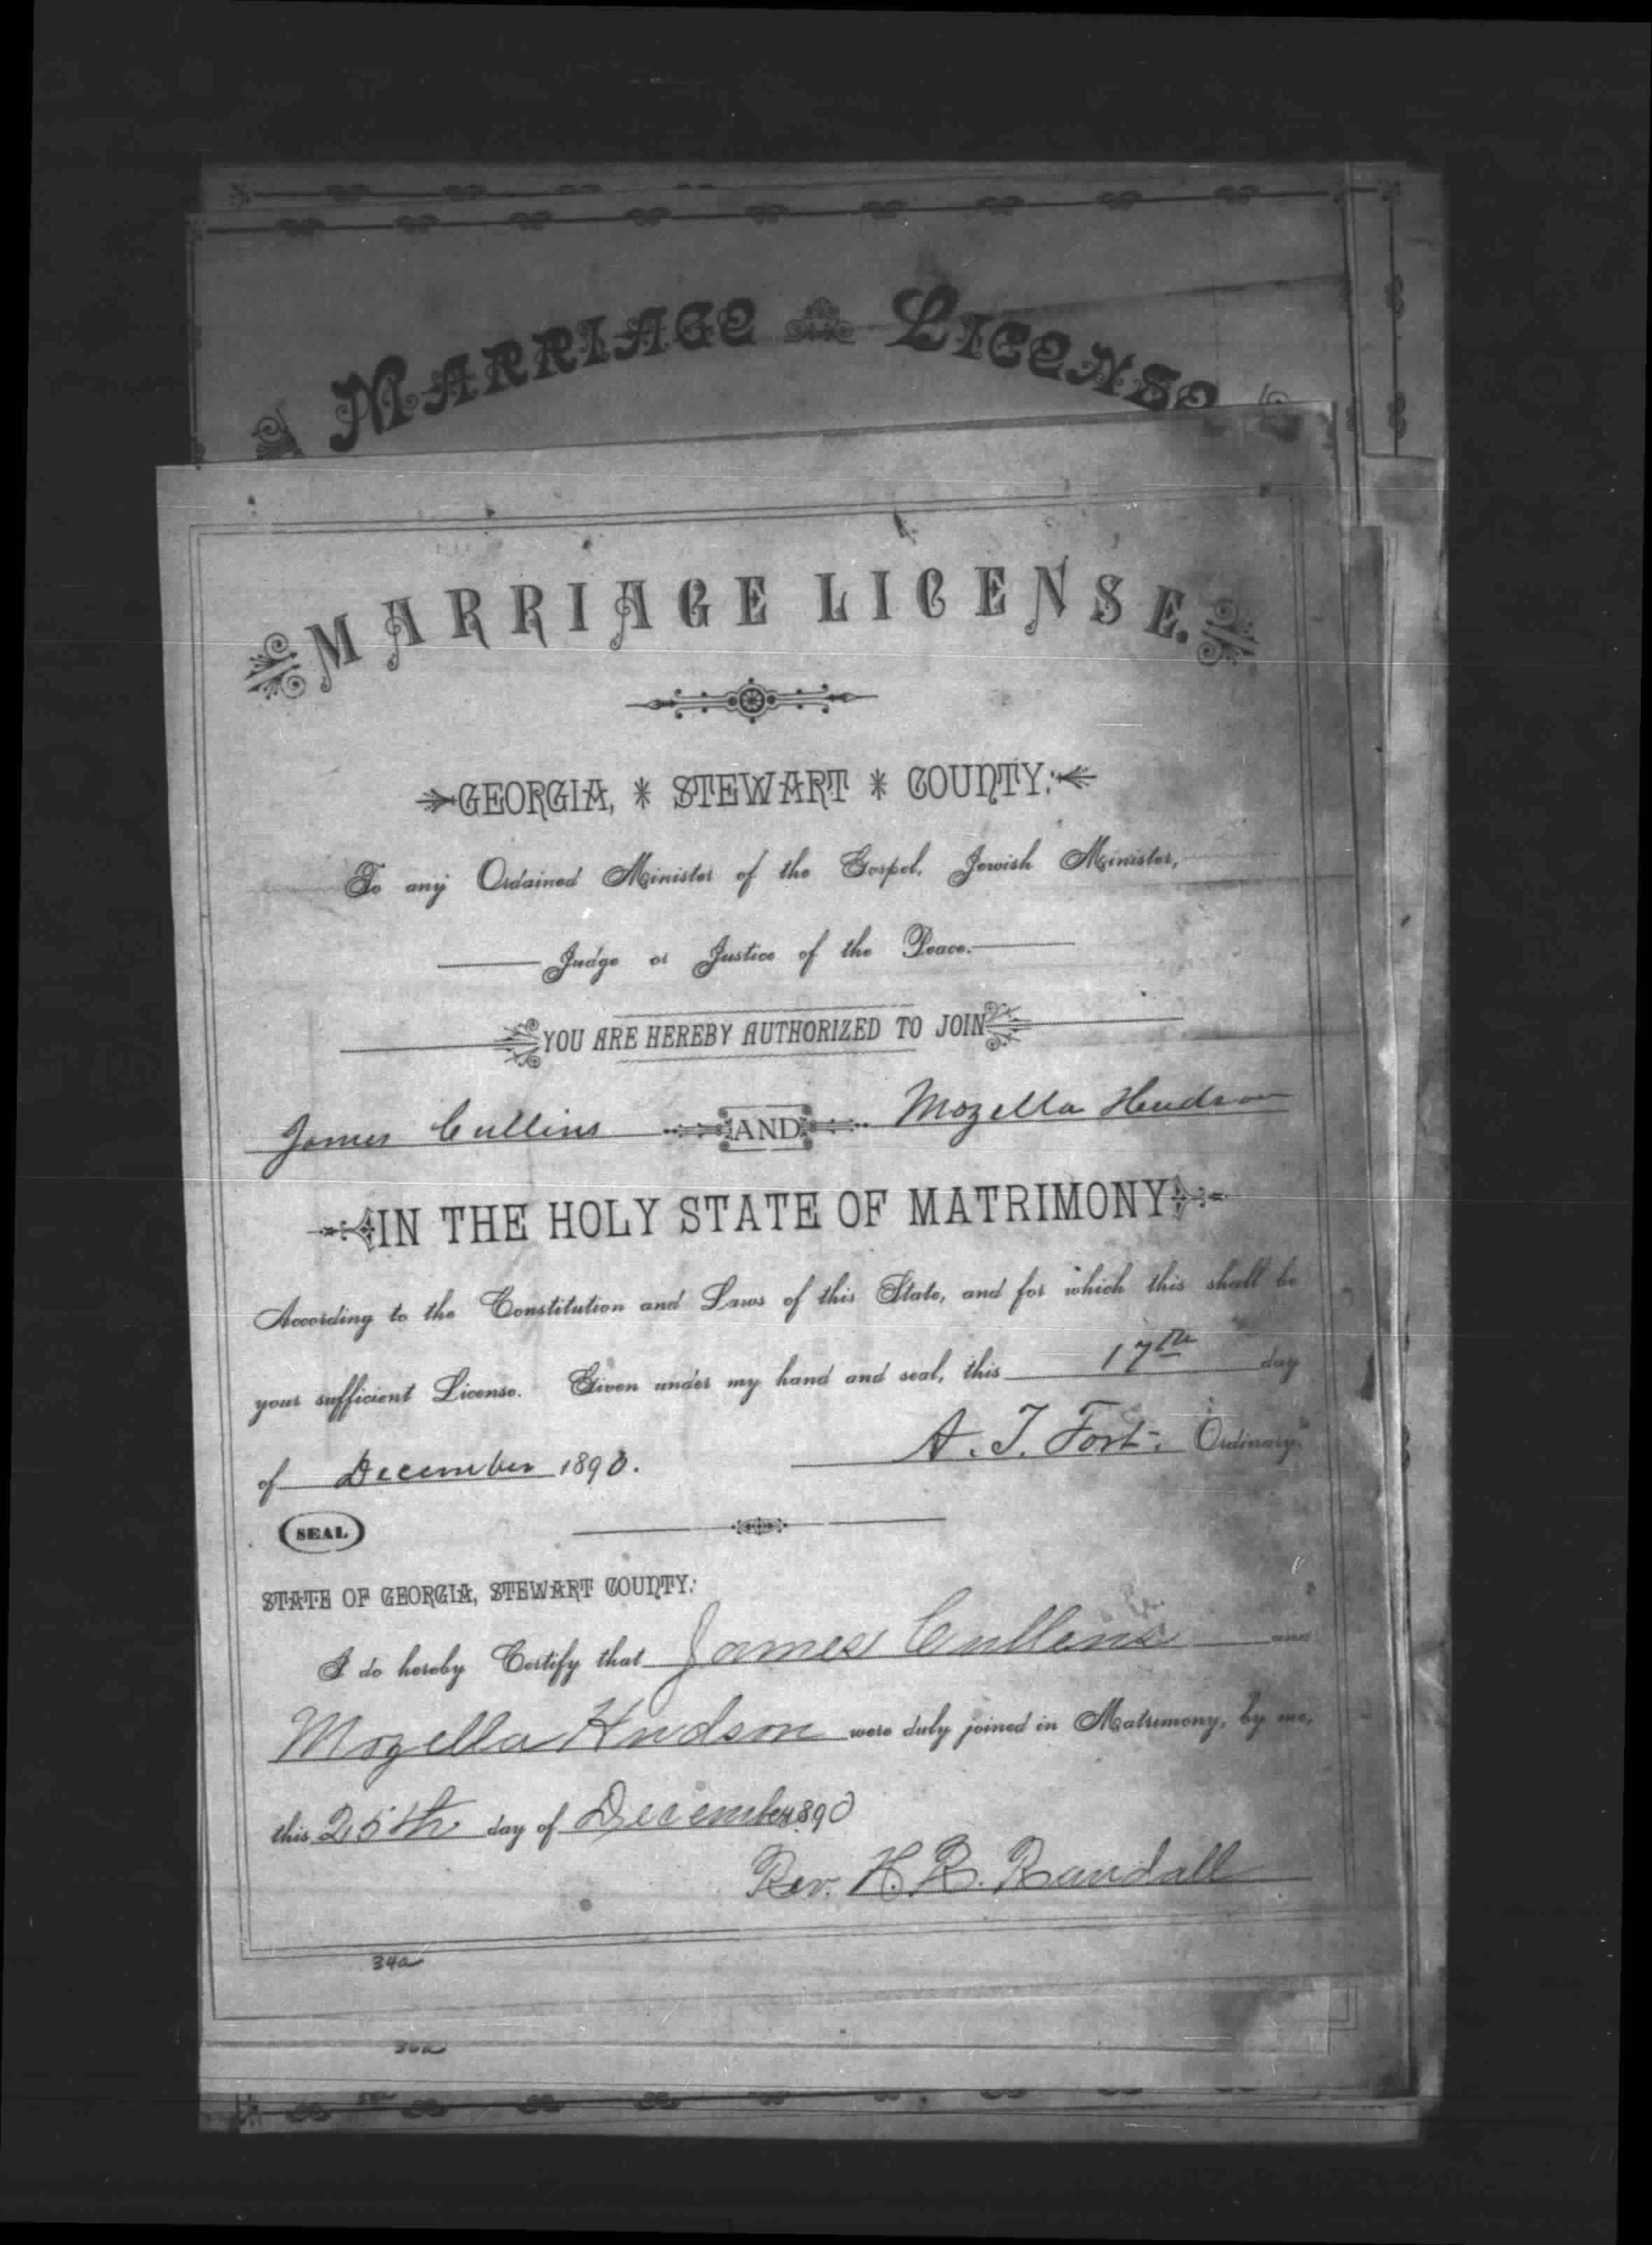 MARRIAGE LICENSE
MARRIAGE LICENSE.
GEORGIA, * STEWART * COUNTY:
To any Ordained Minister of the Gospel, Jewish Minister,
Judge or Justice of the Peace.
YOU ARE HEREBY AUTHORIZED TO JOIN
James Cullins AND Mozella Hudson
IN THE HOLY STATE OF MATRIMONY
According to the Constitution and Laws of this State, and for which this shall be
your sufficient License. Given under my hand and seal, this 17th day
of December 1890. A. T. Fort. Ordinary.
SEAL
STATE OF GEORGIA, STEWART COUNTY:
I do hereby Certify that James Cullens and
Mozella Hudson were duly joined in Matrimony, by me,
this 25th day of December 1890
Rev. H. R. Randall
34a